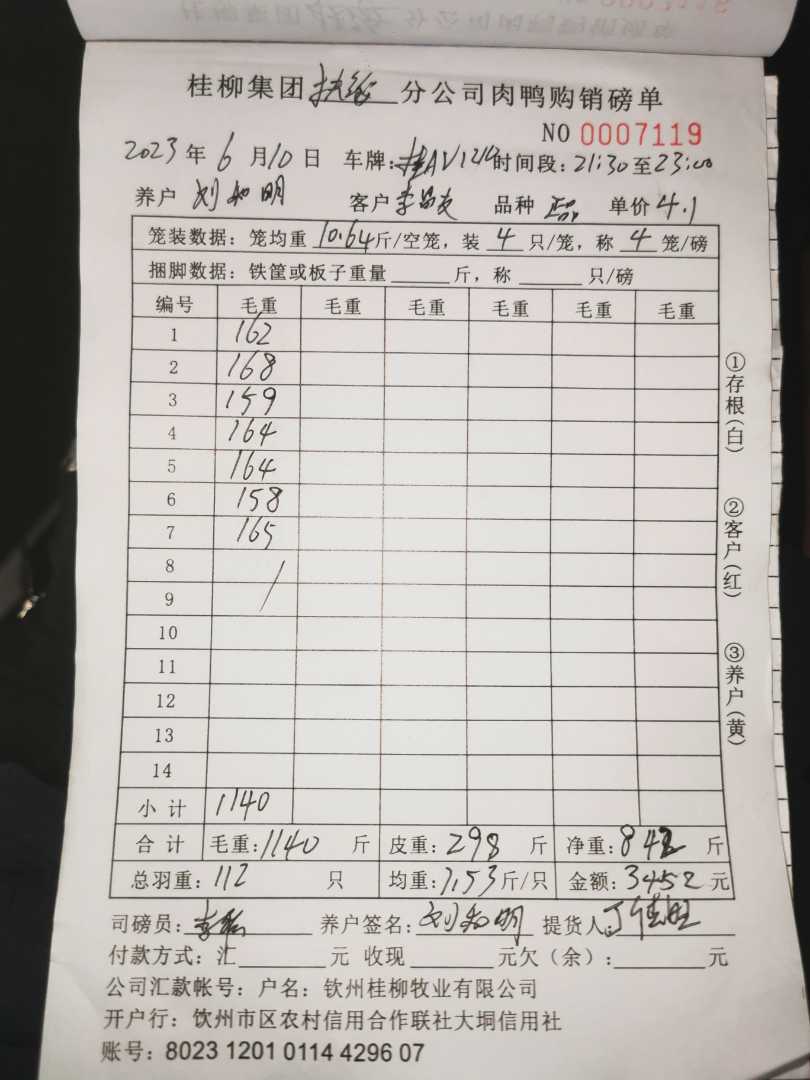 桂柳集团 分公司肉鸭购销磅单
NO 0007119
2023年6月10日 车牌:桂AV1212 时间段:21:30至23:00
养户 刘和明 客户 李 品种 正品 单价 4.1
笼装数据:笼均重 10.64 斤/空笼,装 4 只/笼,称 4 笼/磅
捆脚数据:铁筐或板子重量______斤,称______只/磅
编号 毛重 毛重 毛重 毛重 毛重 毛重
1 162
2 168
3 159
4 164
5 164
6 158
7 165
8
9
10
11
12
13
14
小计 1140
合计 毛重:1140 斤 皮重:298 斤 净重:842 斤
总羽重:112 只 均重:7.53斤/只 金额:3452元
司磅员:李 养户签名:刘和明 提货人:丁佳旺
付款方式:汇______元 收现______元欠(余):______元
公司汇款帐号:户名:钦州桂柳牧业有限公司
开户行:饮州市区农村信用合作联社大垌信用社
账号:8023 1201 0114 4296 07
①存根(白)
②客户(红)
③养户(黄)